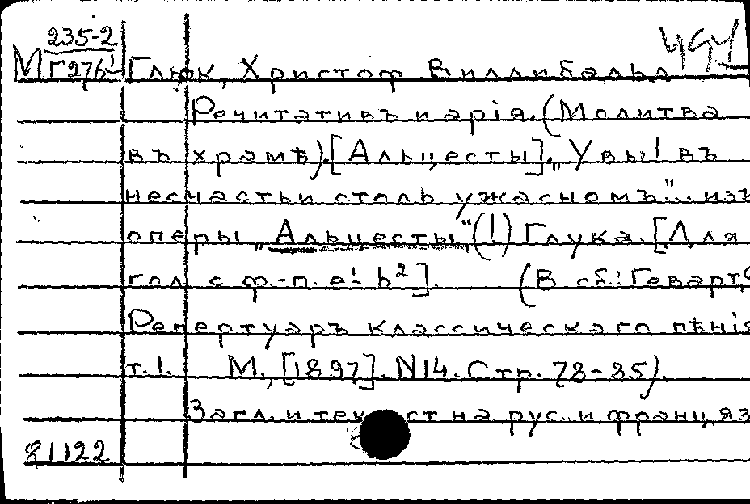 235-2
491
М Г276 Глюк, Христоф Виллибальд
Речитативъ и арія. (Молитва
въ храмѣ). [Альцесты]. „Увы! въ
несчастьи столь ужасномъ".. изъ
оперы „Альцесты" (!) Глука. [Для
гол. с ф-п. e¹-b²]. (В сб.: Геварт,
Репертуаръ классическаго пѣнія
т.1. М., [1897]. N14. Стр. 78-85).
Загл. и текст на рус. и франц. яз
81122